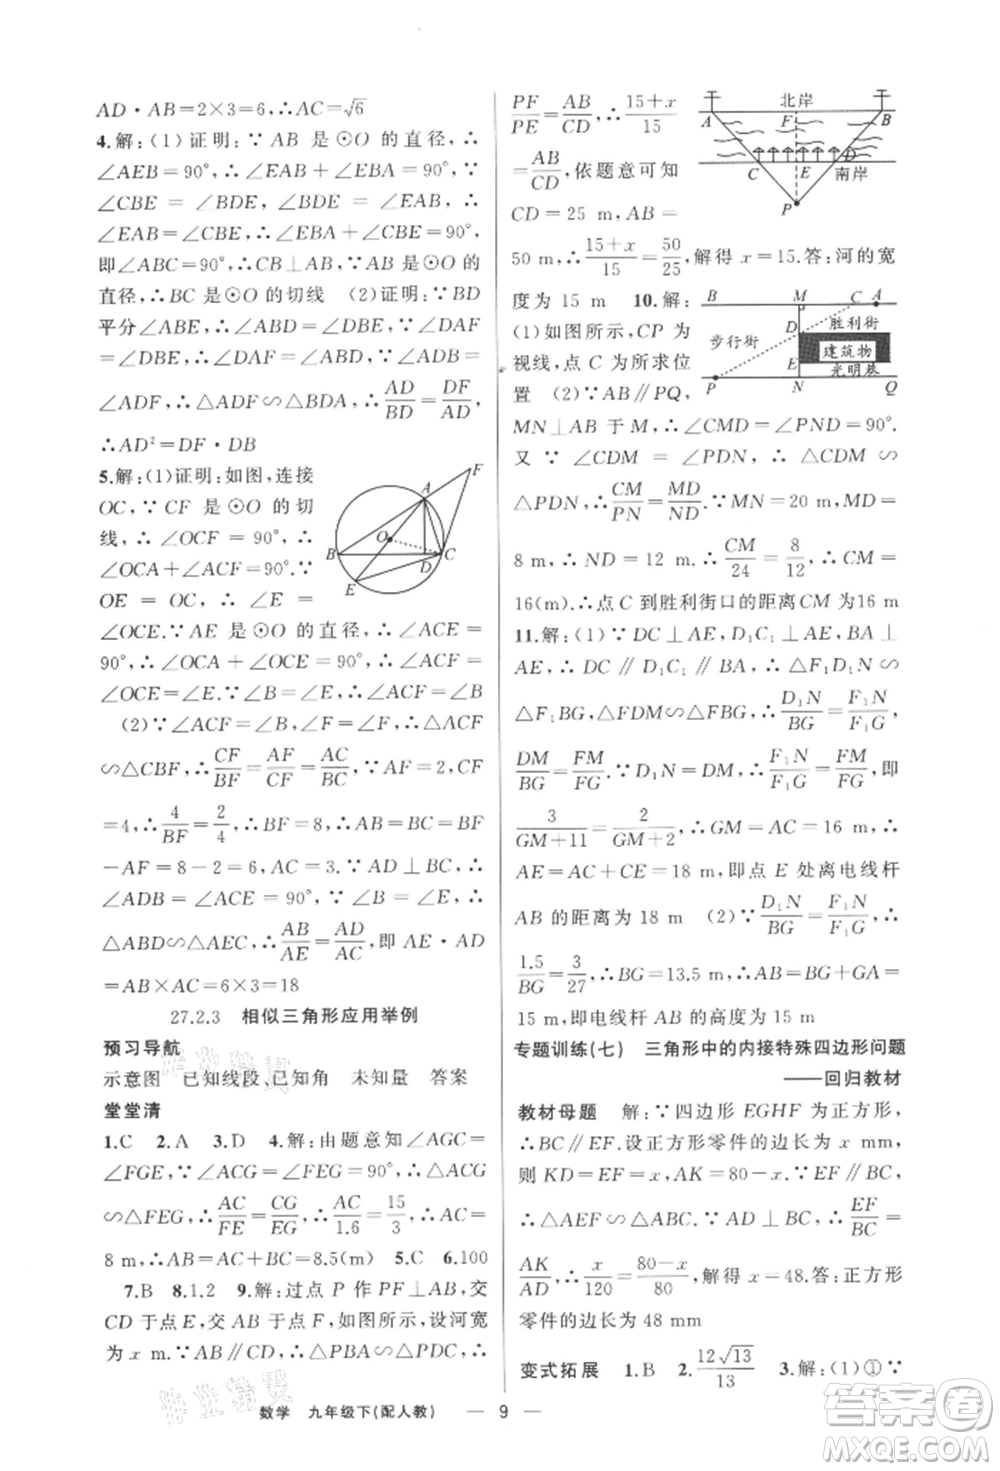 AD·AB=2×3=6,∴AC=√6
4.解:(1)证明:∵AB 是⊙O 的直径,∴
∠AEB=90°,∴∠EAB+∠EBA=90°.∵
∠CBE = ∠BDE, ∠BDE = ∠EAB, ∴
∠EAB=∠CBE,∴∠EBA+∠CBE=90°,
即∠ABC=90°,∴CB⊥AB.∵AB 是⊙O 的
直径,∴BC 是⊙O 的切线 (2)证明:∵BD
平分∠ABE,∴∠ABD=∠DBE,∵∠DAF
=∠DBE,∴∠DAF=∠ABD.∵∠ADB=
∠ADF,∴△ADF∽△BDA,∴AD/BD=DF/AD,
∴AD²=DF·DB
5.解:(1)证明:如图,连接
OC,∵CF 是⊙O 的切
线,∴∠OCF=90°,∴
∠OCA+∠ACF=90°.∵
OE = OC,∴∠E =
∠OCE.∵AE 是⊙O 的直径,∴∠ACE=
90°,∴∠OCA+∠OCE=90°,∴∠ACF=
∠OCE=∠E.∵∠B=∠E,∴∠ACF=∠B
(2)∵∠ACF=∠B,∠F=∠F,∴△ACF
∽△CBF,∴CF/BF=AF/CF=AC/BC.∵AF=2,CF
=4,∴4/BF=2/4,∴BF=8,∴AB=BC=BF
-AF=8-2=6,AC=3.∵AD⊥BC,∴
∠ADB=∠ACE=90°.∵∠B=∠E,∴
△ABD∽△AEC,∴AB/AE=AD/AC,即 AE·AD
=AB×AC=6×3=18
27.2.3 相似三角形应用举例
预习导航
示意图 已知线段、已知角 未知量 答案
堂堂清
1.C 2.A 3.D 4.解:由题意知∠AGC=
∠FGE,∵∠ACG=∠FEG=90°,∴△ACG
∽△FEG,∴AC/FE=CG/EG,∴AC/1.6=15/3,∴AC=
8 m,∴AB=AC+BC=8.5(m) 5.C 6.100
7.B 8.1.2 9.解:过点 P 作 PF⊥AB,交
CD 于点 E,交 AB 于点 F,如图所示,设河宽
为 x m.∵AB∥CD,∴△PBA∽△PDC,∴
PF/PE=AB/CD,∴(15+x)/15
=AB/CD,依题意可知
CD=25 m,AB=
50 m,∴(15+x)/15=50/25,解得 x=15.答:河的宽
度为 15 m 10.解:
(1)如图所示,CP 为
视线,点 C 为所求位
置 (2)∵AB∥PQ,
MN⊥AB 于 M,∴∠CMD=∠PND=90°.
又 ∵∠CDM=∠PDN,∴△CDM∽
△PDN,∴CM/PN=MD/ND.∵MN=20 m,MD=
8 m,∴ND=12 m.∴CM/24=8/12,∴CM=
16(m).∴点 C 到胜利街口的距离 CM 为16 m
11.解:(1)∵DC⊥AE,D₁C₁⊥AE,BA⊥
AE,∴DC∥D₁C₁∥BA,∴△F₁D₁N∽
△F₁BG,△FDM∽△FBG,∴D₁N/BG=F₁N/F₁G,
DM/BG=FM/FG.∵D₁N=DM,∴F₁N/F₁G=FM/FG,即
3/(GM+11)=2/(GM+2),∴GM=16 m,∴
AE=AC+CE=18 m,即点 E 处离电线杆
AB 的距离为 18 m (2)∵D₁N/BG=F₁N/F₁G,∴
1.5/BG=3/27,∴BG=13.5 m,∴AB=BG+GA=
15 m,即电线杆 AB 的高度为 15 m
专题训练(七) 三角形中的内接特殊四边形问题
——回归教材
教材母题 解:∵四边形 EGHF 为正方形,
∴BC∥EF.设正方形零件的边长为 x mm,
则 KD=EF=x,AK=80-x.∵EF∥BC,
∴△AEF∽△ABC,∵AD⊥BC,∴EF/BC=
AK/AD,∴x/120=(80-x)/80,解得 x=48.答:正方形
零件的边长为 48 mm
变式拓展 1.B 2.12√13/13 3.解:(1)①∵
北岸
A F B
C E D 南岸
P
B M C A
胜利街
步行街 D
建筑物
E
光明巷
P N Q
F
A
O
B D C
E
数学 九年级下(配人教) — 9 —
MXQE.COM